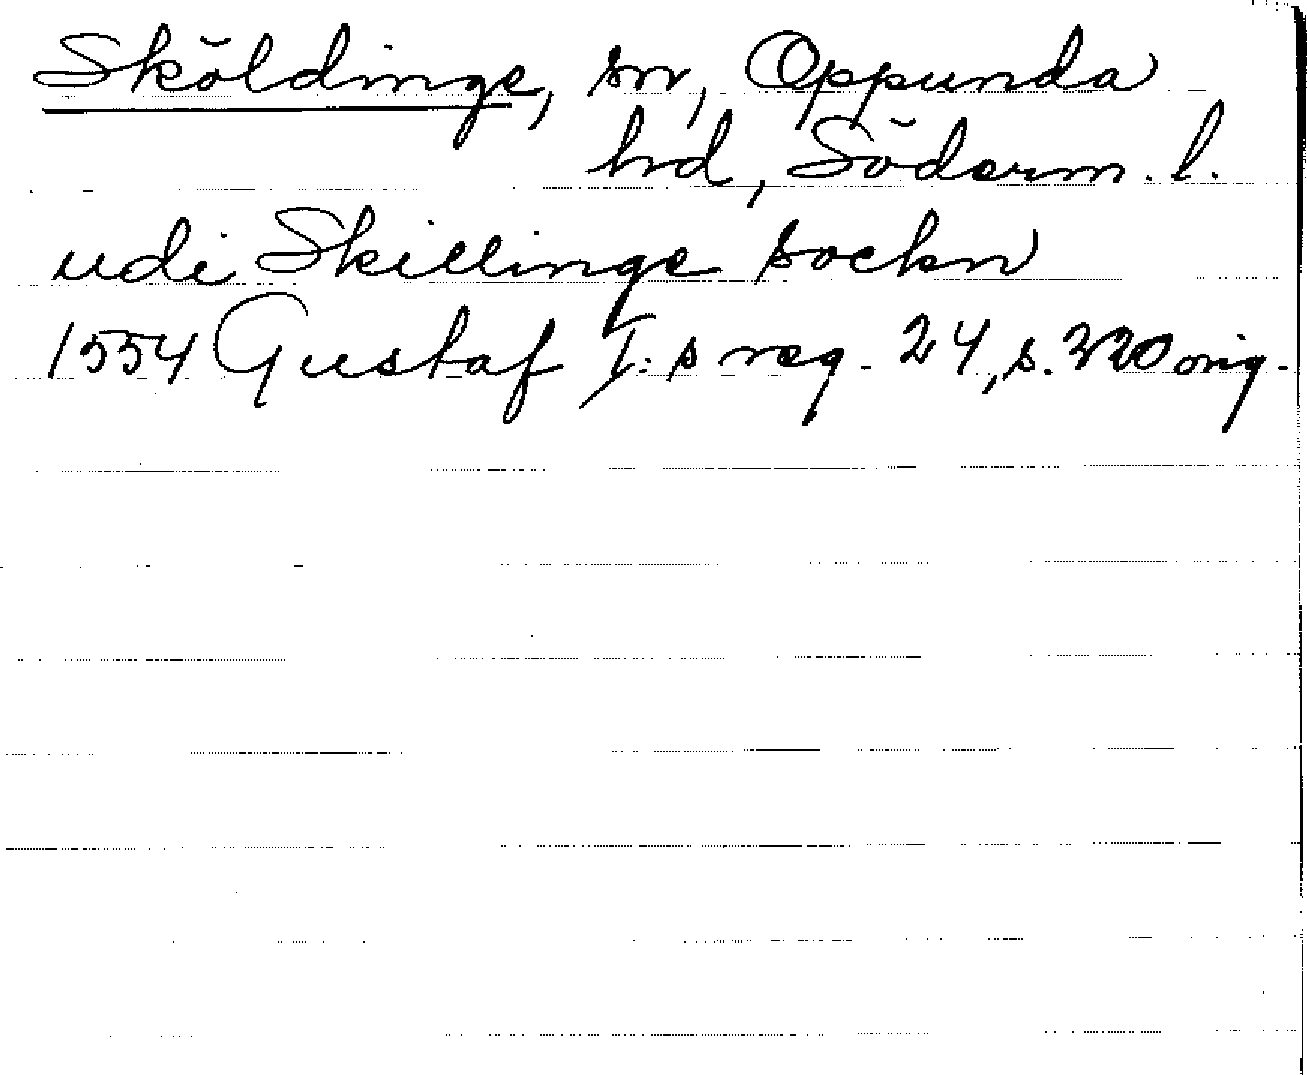 Sköldinge, sn, Oppunda
hd, Söderm. l.
udi Skillinge sockn
1554 Gustaf I:s reg. 24, s. 320 orig.